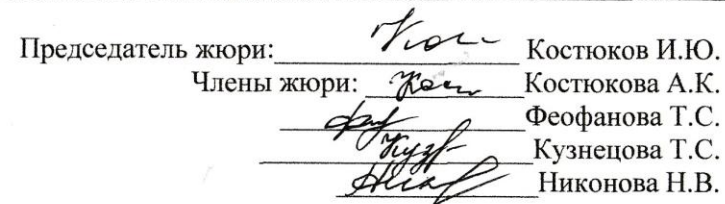 Председатель жюри: Костюков И.Ю.
Члены жюри: Костюкова А.К.
Феофанова Т.С.
Кузнецова Т.С.
Никонова Н.В.